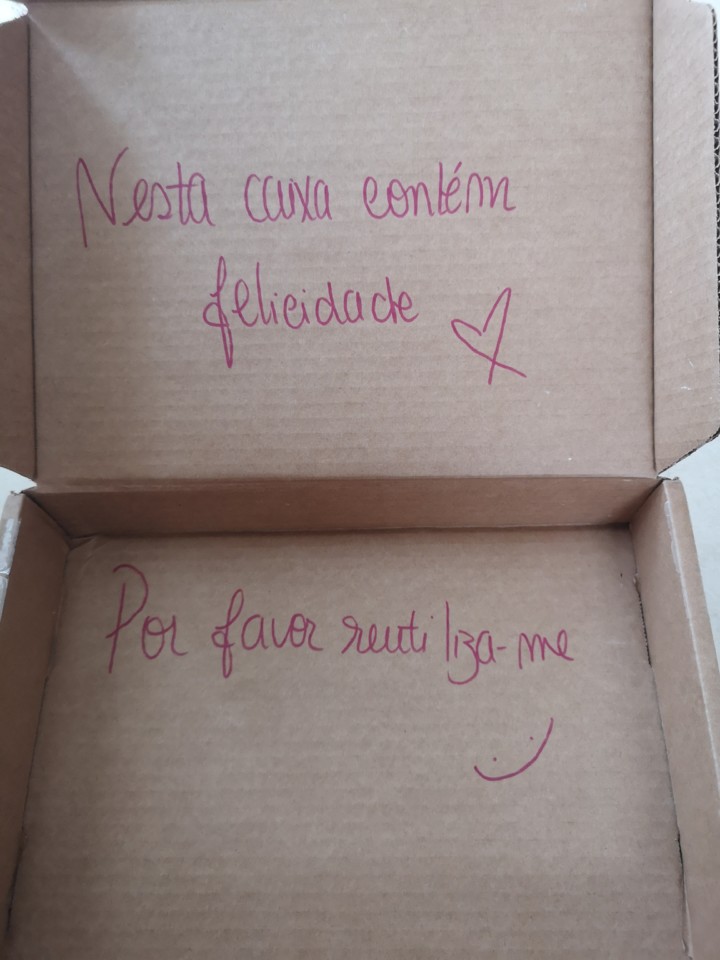 Nesta caixa contém
felicidade
Por favor reutiliza-me